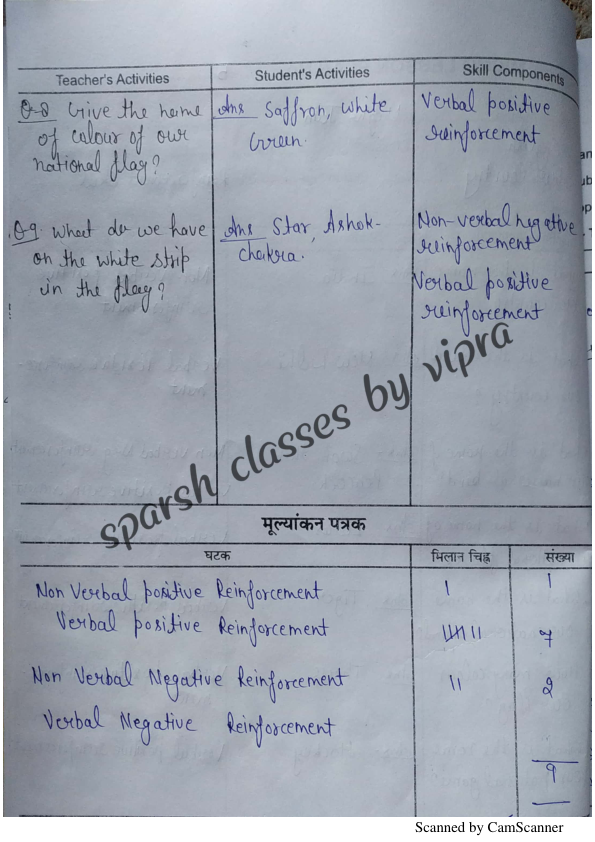 Teacher's Activities
Student's Activities
Skill Components
Q-8 Give the name
of calour of our
national flag?
Ans Saffron, white
Green.
Verbal positive
reinforcement
Q-9. What do we have
on the white strip
in the flag?
Ans Star, Ashok-
chakra.
Non-verbal negative
reinforcement
Verbal positive
reinforcement
sparsh classes by vipra
मूल्यांकन पत्रक
घटक
मिलान चिह्न
संख्या
Non Verbal positive Reinforcement
I
1
Verbal positive Reinforcement
IIII II
7
Non Verbal Negative Reinforcement
II
2
Verbal Negative Reinforcement
9
Scanned by CamScanner